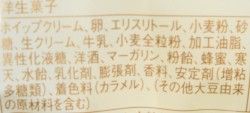 洋生菓子
ホイップクリーム、卵、エリスリトール、小麦粉、砂
糖、生クリーム、牛乳、小麦全粒粉、加工油脂、
異性化液糖、洋酒、マーガリン、粉飴、蜂蜜、寒
天、水飴、乳化剤、膨張剤、香料、安定剤(増粘
多糖類)、着色料(カラメル)、(その他大豆由来
の原材料を含む)